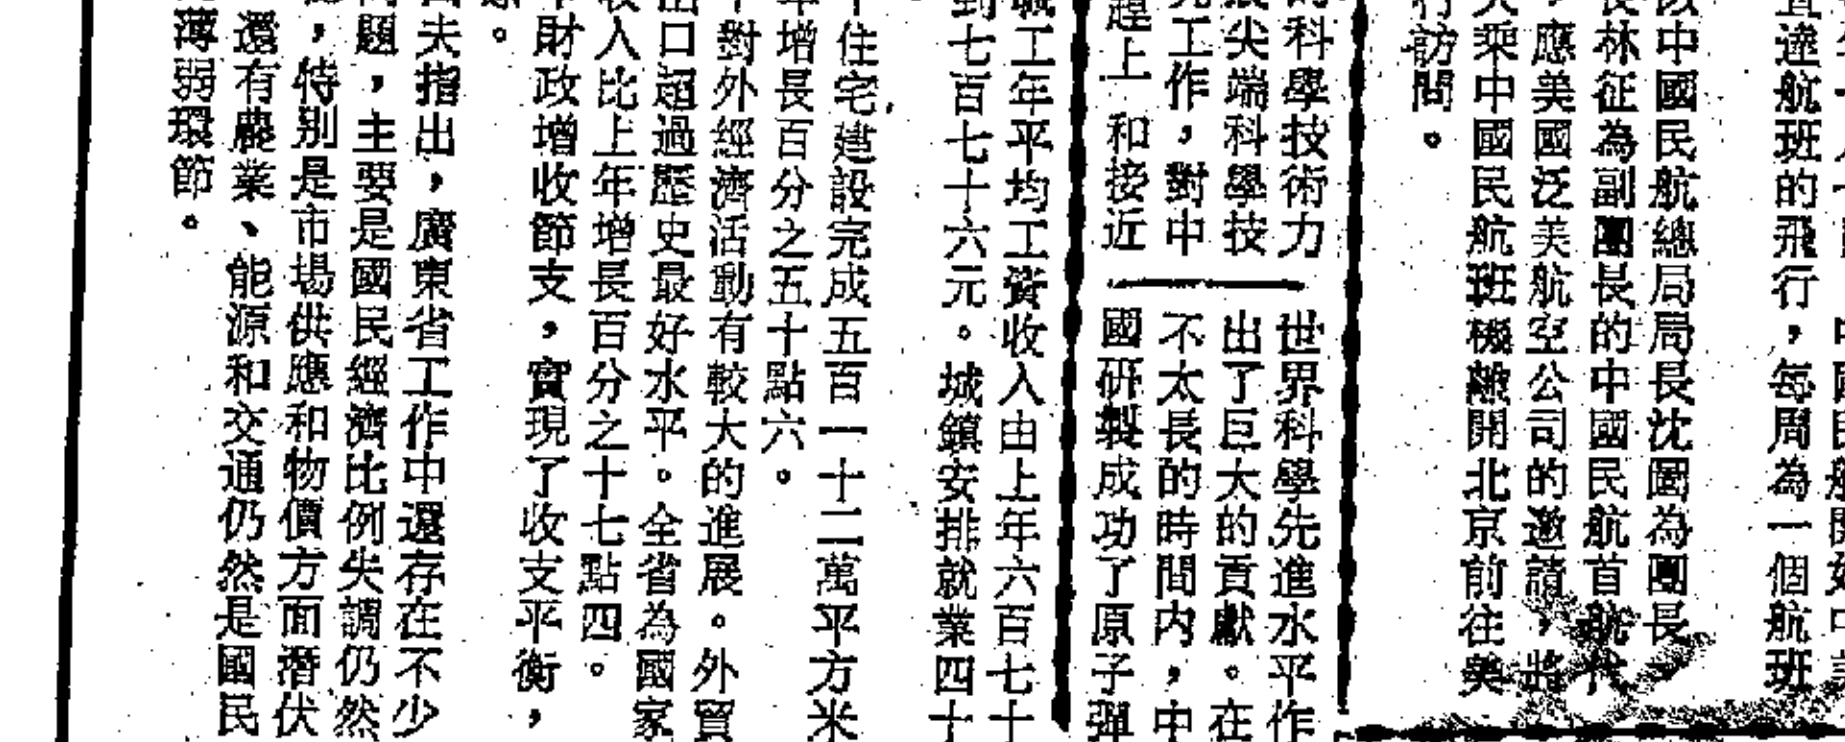 直達航班的飛行，每周為一個航班
以中國民航總局局長沈圖為團長、
長林征為副團長的中國民航首航代
，應美國泛美航空公司的邀請，將
天乘中國民航班機離開北京前往美
行訪問。
的科學技術力
展尖端科學技
究工作，對中
趕上 和接近
世界科學先進水平作
出了巨大的貢獻。在
不太長的時間内，中
國研製成功了原子彈
職工年平均工資收入由上年六百七十
到七百七十六元。城鎮安排就業四十
住宅建設完成五百一十二萬平方米
年增長百分之五十點六。
對外經濟活動有較大的進展。外貿
出口超過歷史最好水平。全省為國家
收入比上年增長百分之十七點四。
財政增收節支，實現了收支平衡，
。
夫指出，廣東省工作中還存在不少
問題，主要是國民經濟比例失調仍然
，特别是市場供應和物價方面潛伏
還有農業、能源和交通仍然是國民
薄弱環節。